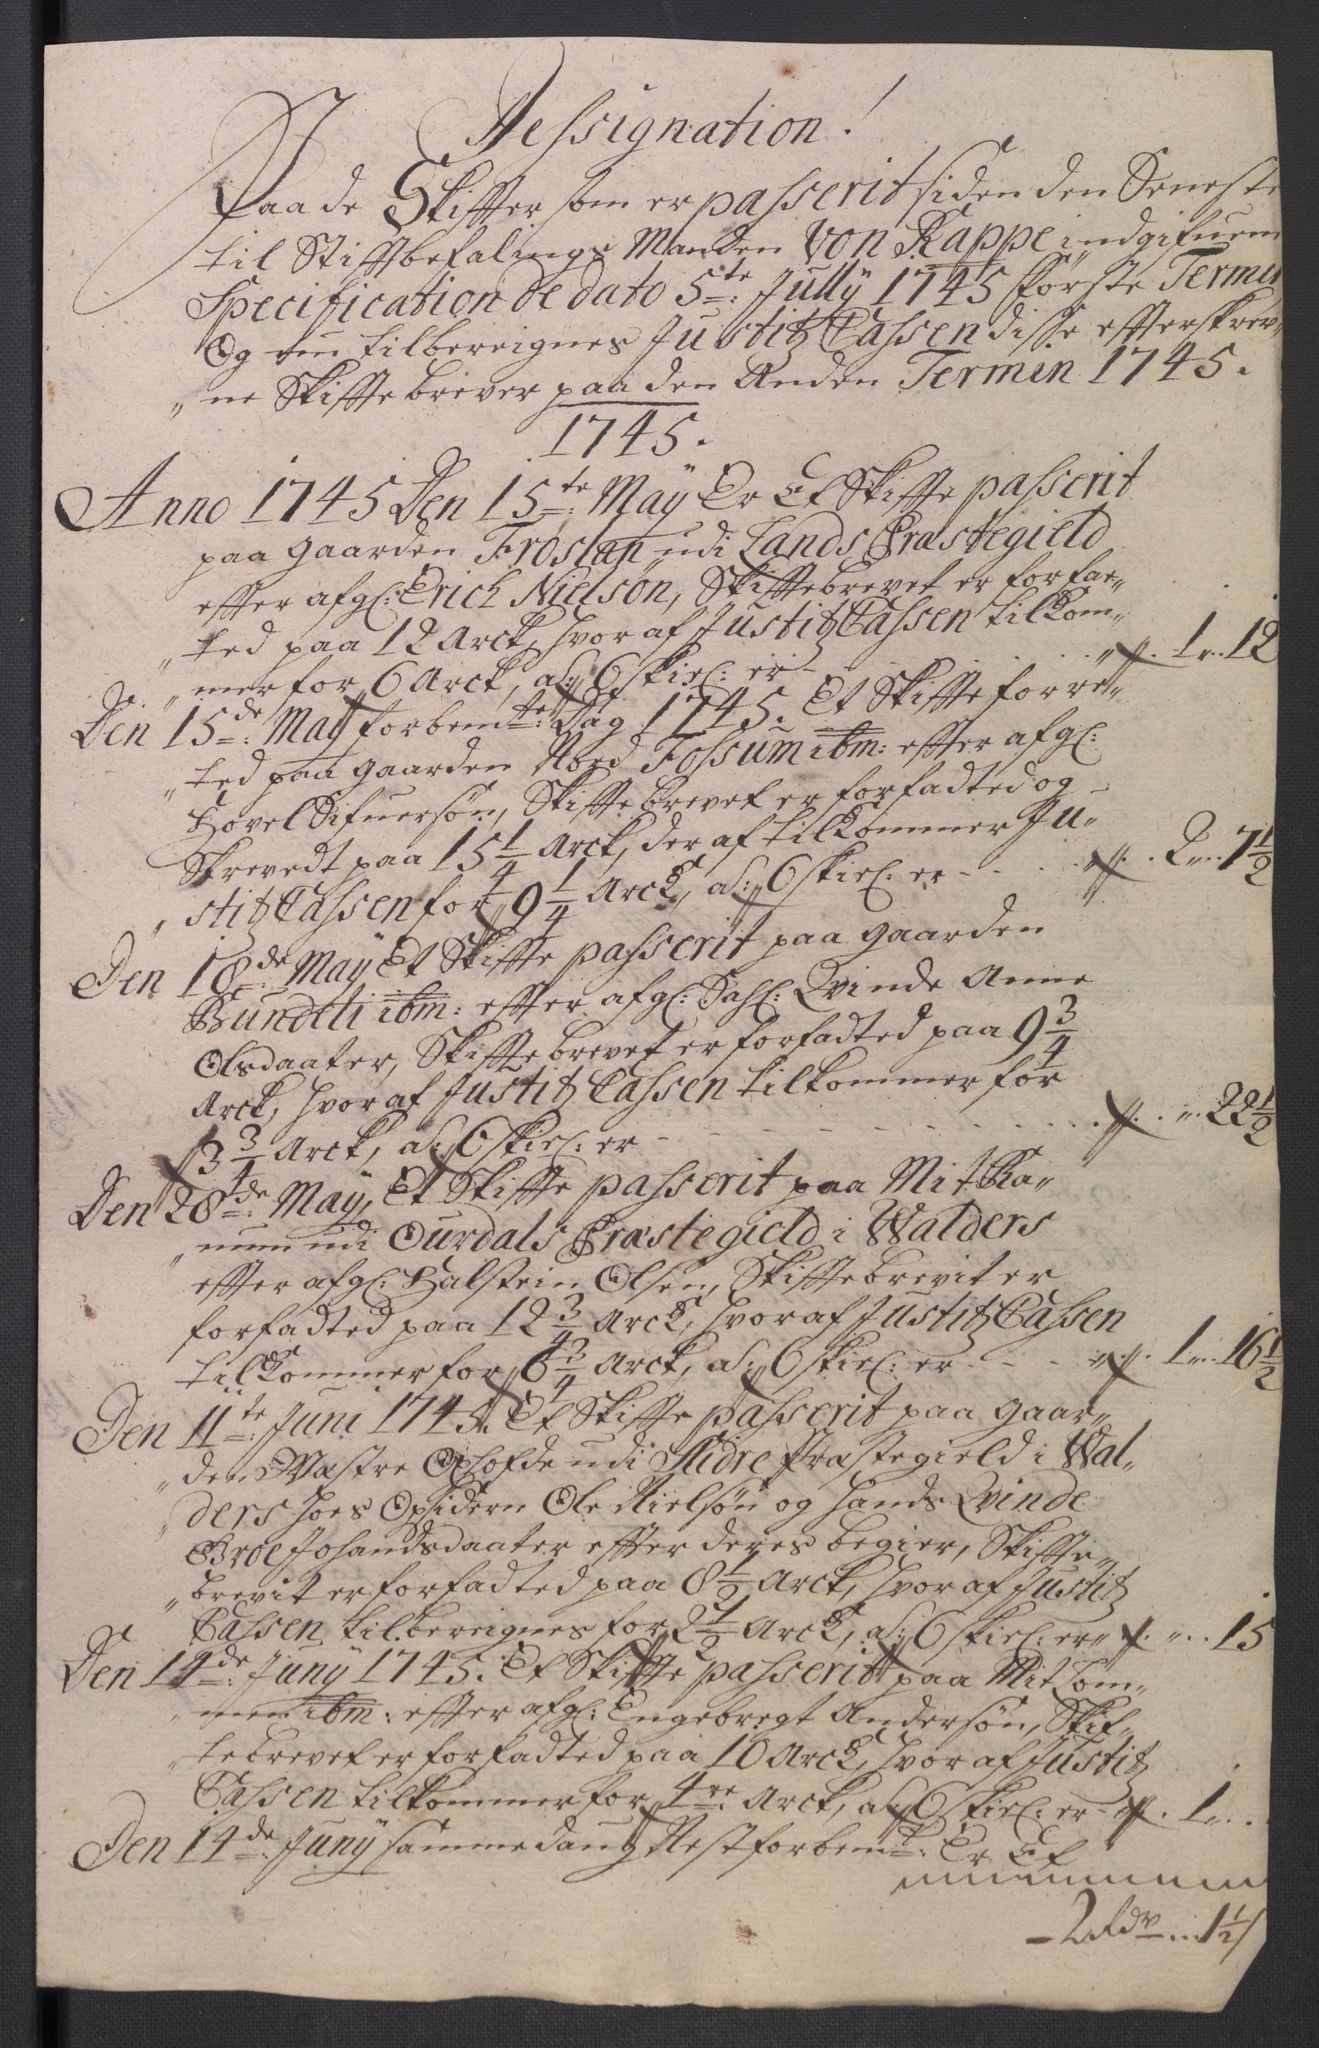 Dessignation!
Paa de Skiffter som er passerit siden den Seneste
til Stiftbefalings Manden Von Rappe indgifuen
Specification de dato 5te July 1745 første Termin
Og nu tilbereignes Justitz Cassen disse effterskrev-
„ne Skifftebrever paa den Anden Termin 1745.
1745.
Anno 1745 Den 15te: May Er Et Skiffte passerit
paa gaarden Frøslan, udi Lands Præstegield
effter afg: Erich Nielsøn, Skifftebrevet er forfat-
„ted paa 12 Arck, hvoraf Justitz Cassen tilkom-
„mer for 6 Arck, a 6 skil: er - - - 1„ 12
Den 15de: May forbemte: Dag 1745. Et Skiffte forret-
„ted paa gaarden Nord Fossum ibm: effter afg:
Hovel Sifuersøn, Skifftebrevet er forfadted og
Skrevedt paa 15 1/4 Arck, der af tilkommer Ju-
„stitz Cassen for 9 1/4 Arck, a 6 skil: er - - - 2„ 7 1/2
Den 18de: May Et Skiffte passerit paa gaarden
Bundtli ibm: effter afg: Sal: Qvinde Anne
Olsdaater, Skifftebrevet er forfadted paa 9 3/4
Arck, hvoraf Justitz Cassen tilkommer for
3 3/4 Arck, a 6 skil: er - - - „ 22 1/2
Den 28de: May, Et Skiffte passerit paa Mit Ra-
„num udi Ourdals Præstegield i Walders
effter afg: Halstein Olsen, Skifftebrevit er
forfadted paa 12 3/4 Arck, hvoraf Justitz Cassen
tilkommer for 6 3/4 Arck, a 6 skil: er - - - 1„ 16 1/2
Den 11te: Juni 1745. Et Skiffte passerit paa gaar-
„den Wæstre udi Slidre Præstegield i Wal-
„ders hoes Opsidern Ole Nielsøn og hands Qvinde
Broe Johandsdaater effter deres begier, Skiffte-
„brevit er forfadted paa 8 1/2 Arck, hvoraf Justitz
Cassen tilbereignes for 2 1/2 Arck, a 6 skil: er „ 15
Den 14de: Juny 1745. Et Skiffte passerit paa Mit Lom-
„men ibm: effter afg: Engebregt Andersøn, Skif-
„tebrevet er forfadted paa 10 Arck, hvoraf Justitz
Cassen tilkommer for 4re: Arck, a 6 skil: er - 1„
Den 14de: Juny samme daug Nest forbemt: Er Et
1 1/2